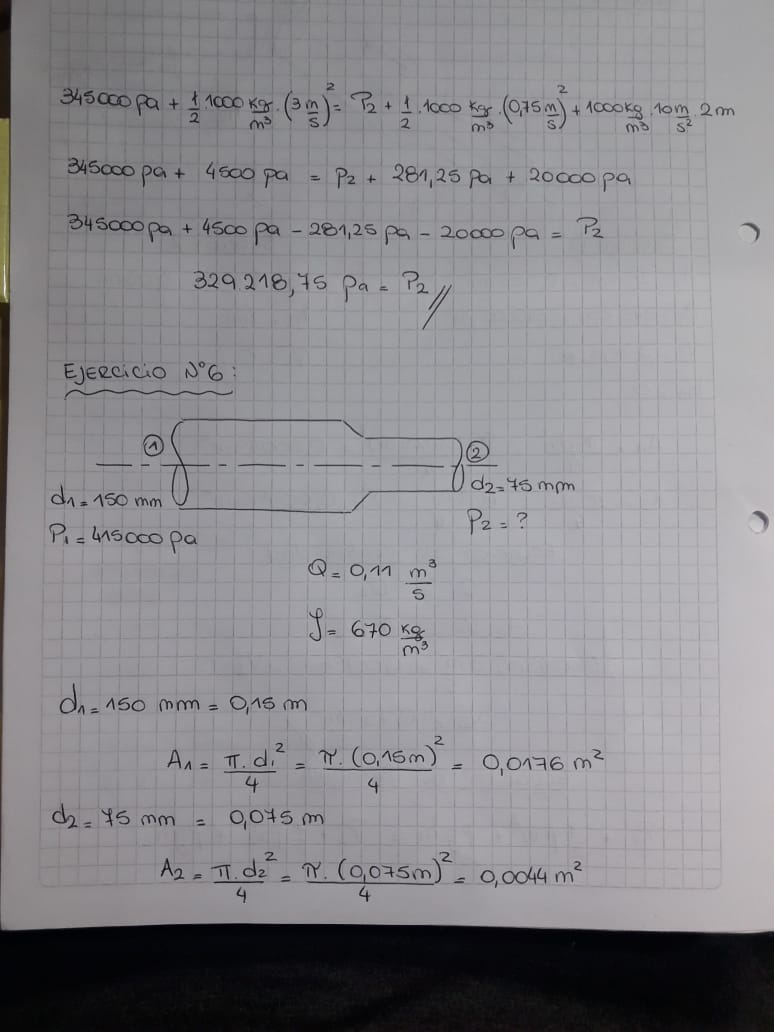 345000 pa + 1/2 . 1000 kg/m³ . (3 m/s)² = P₂ + 1/2 . 1000 kg/m³ . (0,75 m/s)² + 1000 kg/m³ . 10 m/s² . 2 m
345000 pa + 4500 pa = P₂ + 281,25 pa + 20000 pa
345000 pa + 4500 pa - 281,25 pa - 20000 pa = P₂
329.218,75 pa = P₂ //
EJERCICIO N°6:
①
②
d₁ = 150 mm
d₂ = 75 mm
P₁ = 415000 pa
P₂ = ?
Q = 0,11 m³/s
ρ = 670 kg/m³
d₁ = 150 mm = 0,15 m
A₁ = π . d₁²/4 = π . (0,15m)²/4 = 0,0176 m²
d₂ = 75 mm = 0,075 m
A₂ = π . d₂²/4 = π . (0,075m)²/4 = 0,0044 m²